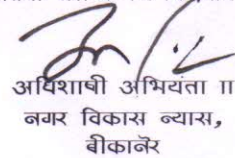 अधिशाषी अभियंता ॥
नगर विकास न्यास,
बीकानेर